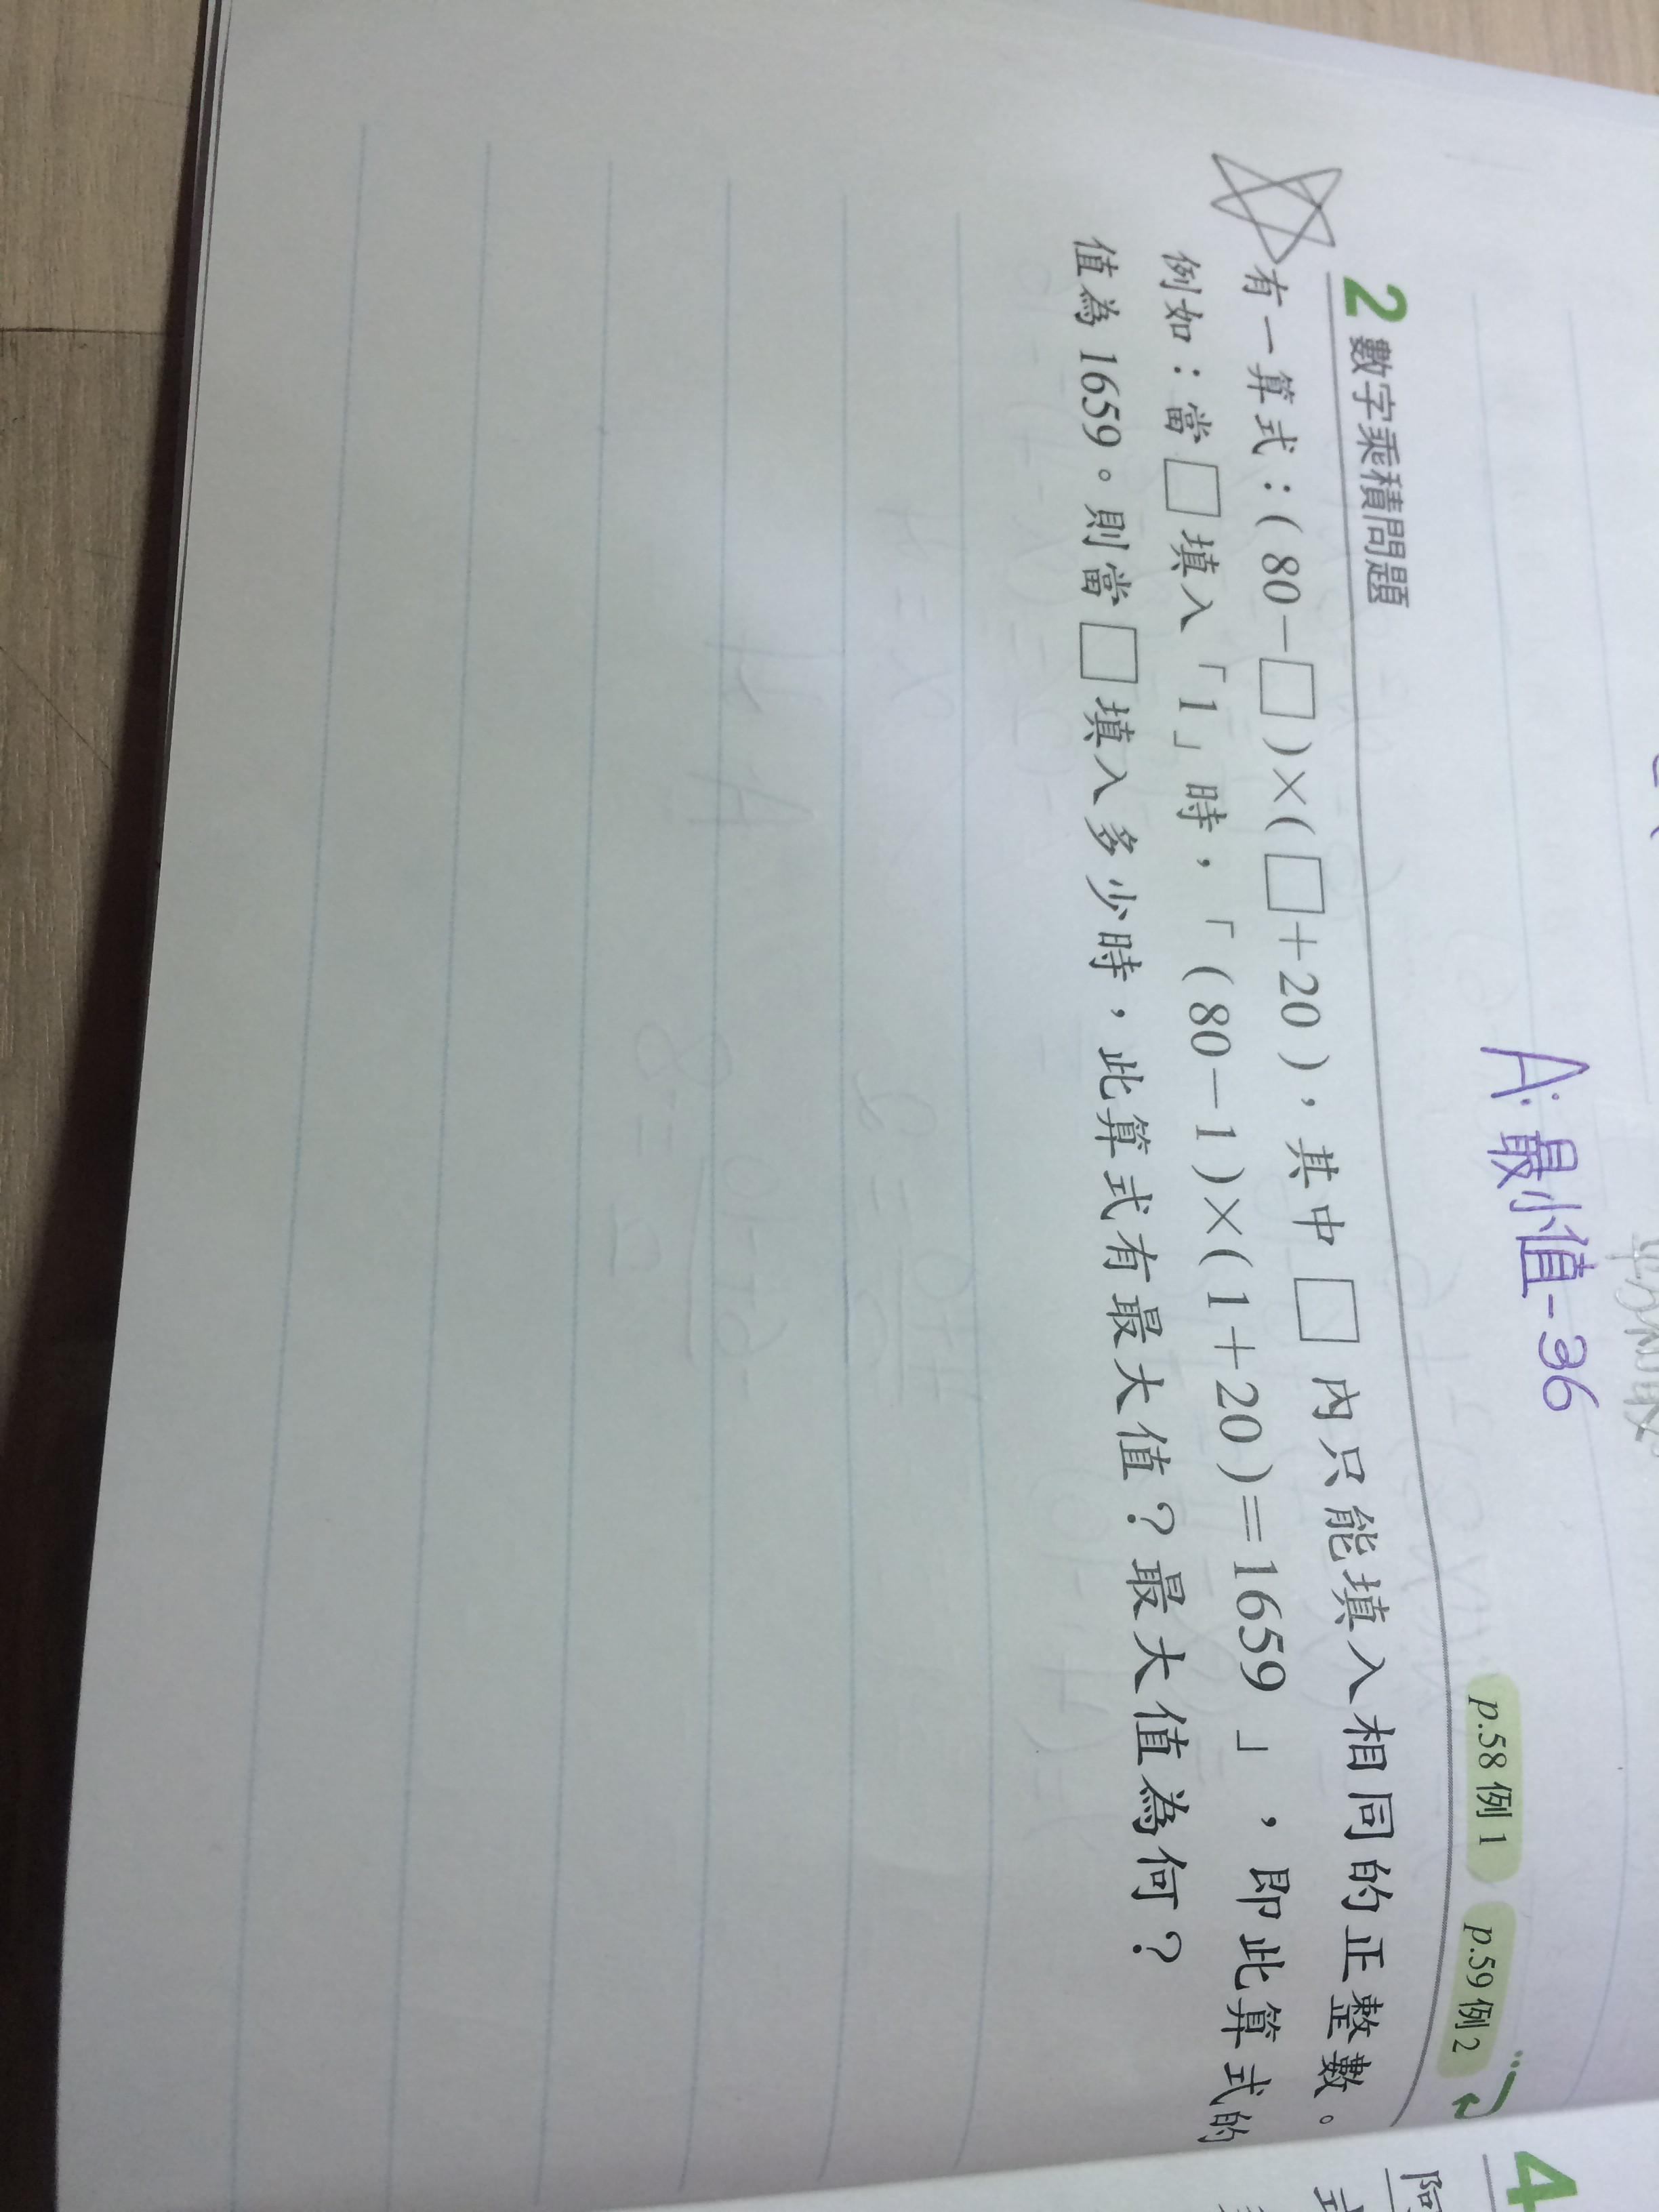 A:最小值-36
p.58 例 1 p.59 例 2
2 數字乘積問題
有一算式：(80－□)×(□＋20)，其中 □ 內只能填入相同的正整數。
例如：當□填入「1」時，「(80－1)×(1＋20)＝1659」，即此算式的
值為1659。則當□填入多少時，此算式有最大值？最大值為何？
4
阿
式